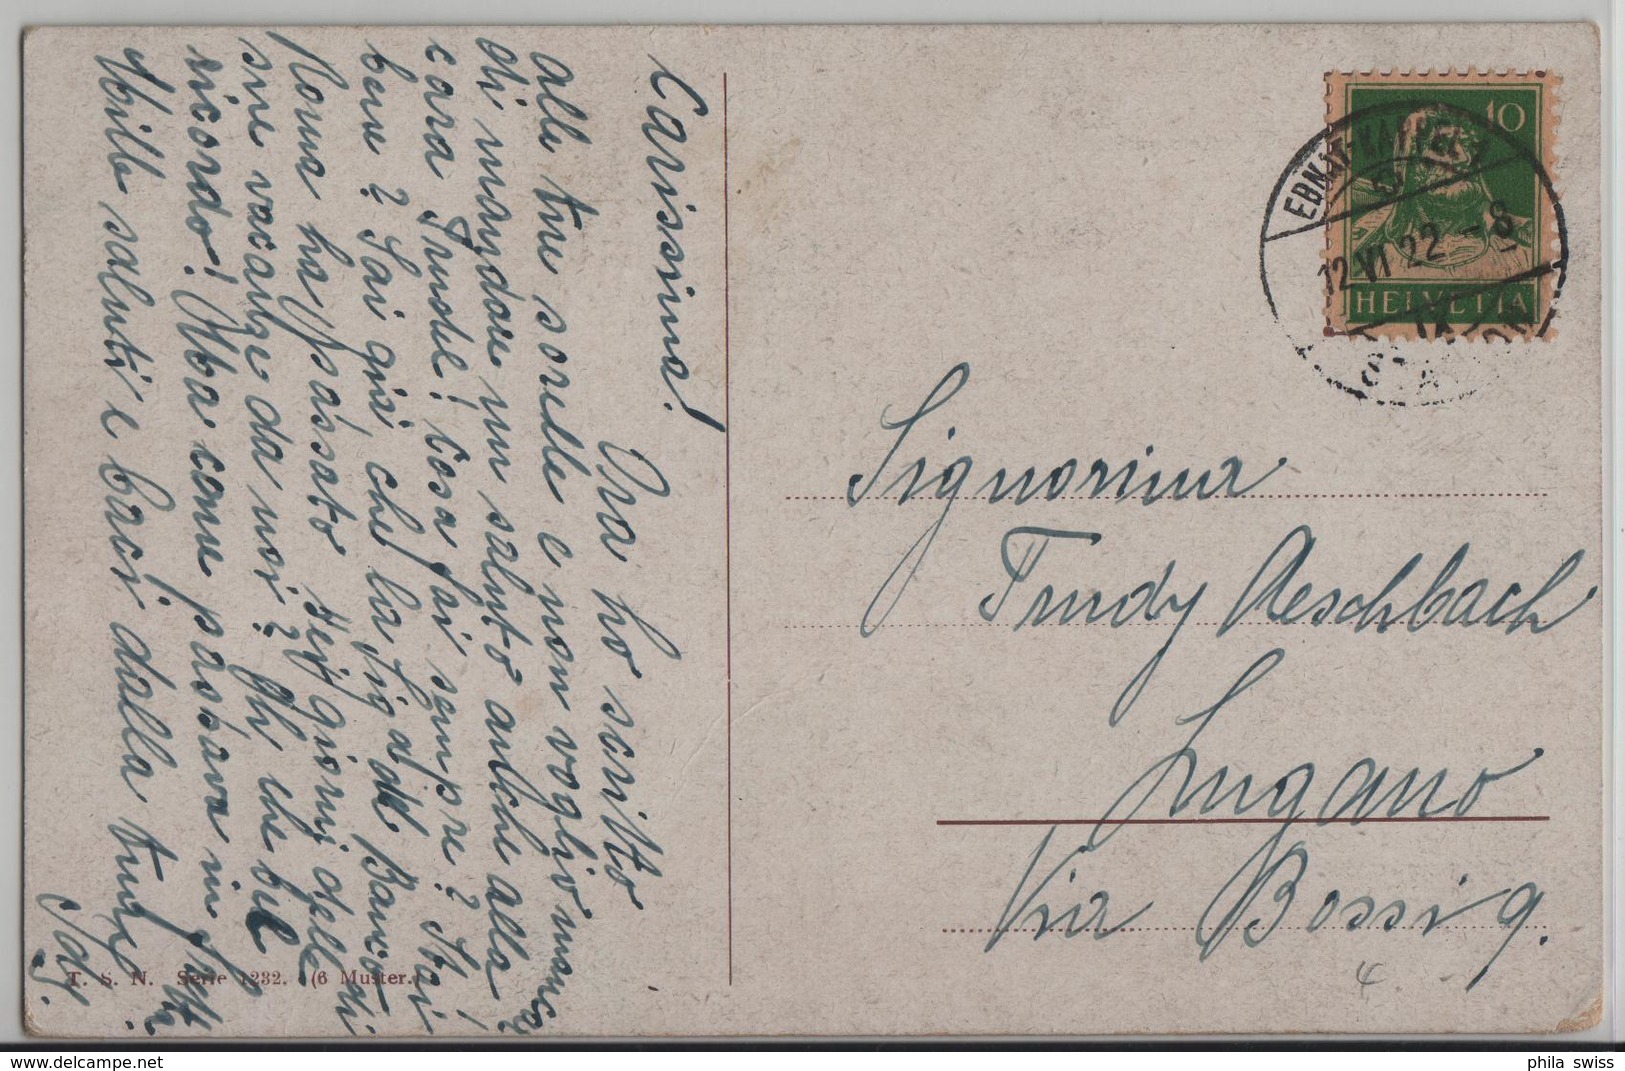 Carissima!
Ora ho scritto
alle tue sorelle e non voglio mancar
di mandare un saluto anche alla
cara Trudel! Cosa fai sempre? Stai
bene? Sai già che la fig. del Banco
Roma ha passato giorni delle
sue vacanze da noi? Ah! che bel
ricordo! Ma come passava in
Mille saluti e baci dalla tua
Ida.
T. S. N. Serie 1232. (6 Muster.)
10
HELVETIA
EBNAT-KAPPEL
12.VI.22.-8
Signorina
Trudy Aeschbach
Lugano
Via Bossi 9.
4
phila swiss